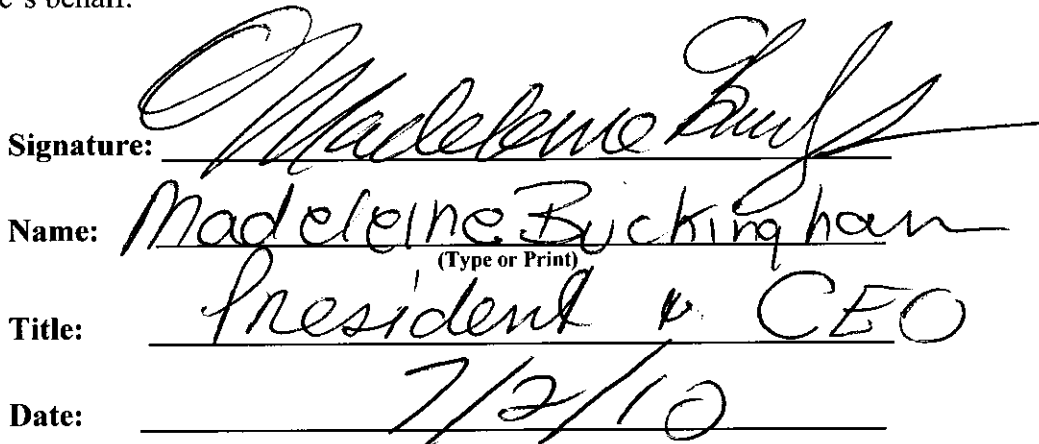 e's behalf.
Signature: Madeleine
Name: Madeleine Buckingham
(Type or Print)
Title: President & CEO
Date: 7/2/10